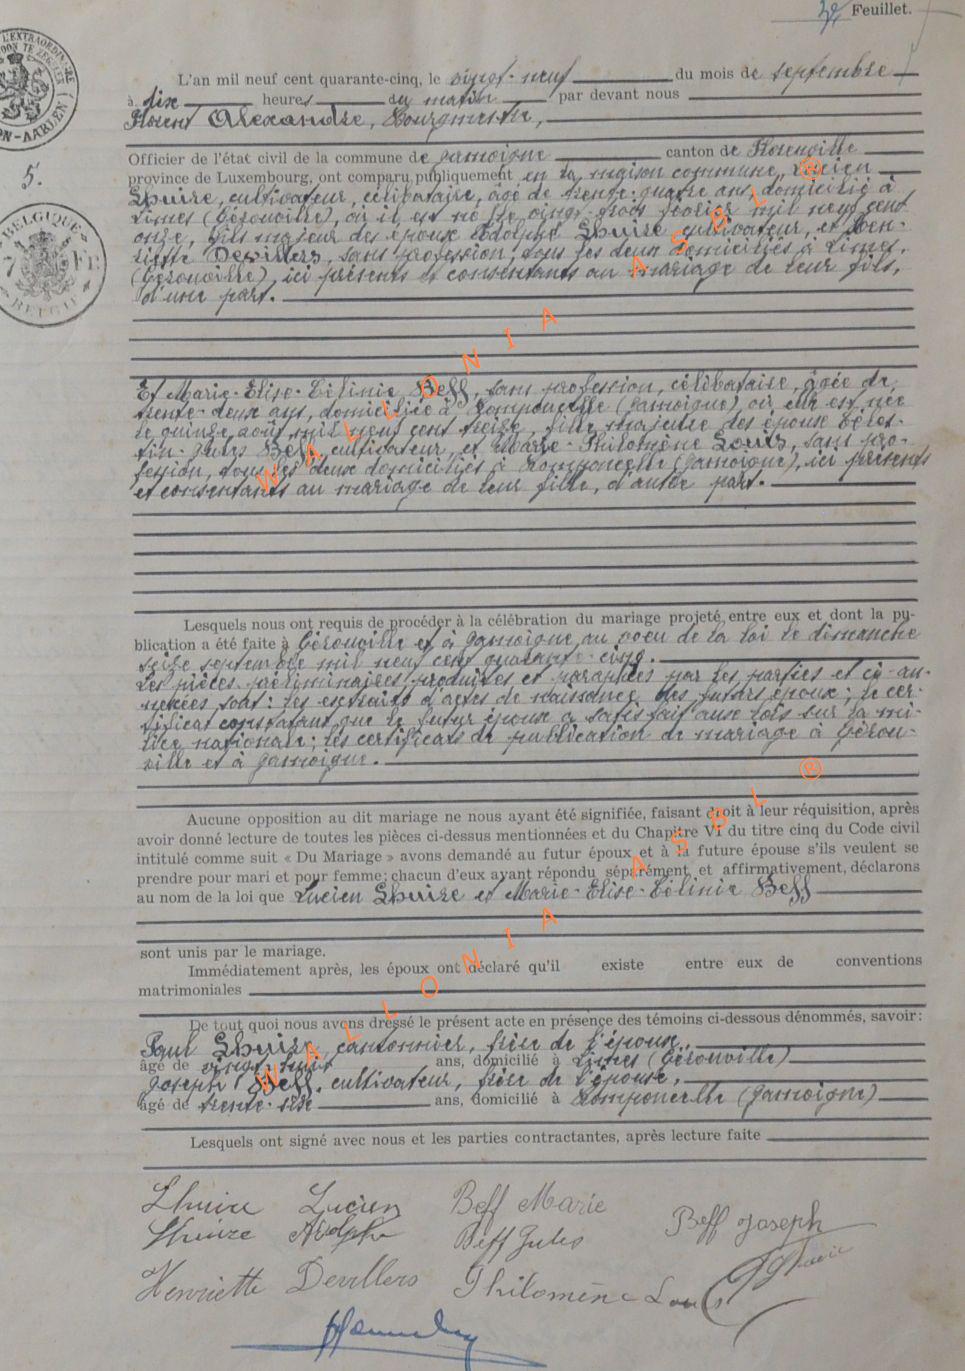 2e Feuillet.
L'EXTRAORDINAIRE
ARLON-AARLEN
5.
BELGIQUE
7 FR
BELGIE
L'an mil neuf cent quarante-cinq, le vingt-neuf du mois de septembre
à dix heures du matin par devant nous
Florent Alexandre, Bourgmestre,
Officier de l'état civil de la commune de Jamoigne canton de Florenville
province de Luxembourg, ont comparu publiquement en la maison commune, Lucien
Lhuire, cultivateur, célibataire, âgé de trente-quatre ans, domicilié à
Limes (Gérouville), où il est né le vingt-trois février mil neuf cent
onze, fils majeur des époux Adolphe Lhuire cultivateur, et Hen-
riette Devillers, sans profession, tous les deux domiciliés à Limes,
(Gérouville), ici présents et consentants au mariage de leur fils,
d'une part.
Et Marie-Elise-Célinie Beff, sans profession, célibataire, âgée de
trente-deux ans, domiciliée à Romponcelle (Jamoigne), où elle est née
le quinze août mil neuf cent treize, fille majeure des époux Céles-
tin-Jules Beff, cultivateur, et Marie-Philomène Louis, sans pro-
fession, tous les deux domiciliés à Romponcelle (Jamoigne), ici présents
et consentants au mariage de leur fille, d'autre part.
Lesquels nous ont requis de procéder à la célébration du mariage projeté entre eux et dont la pu-
blication a été faite à Gérouville et à Jamoigne au voeu de la loi le dimanche
seize septembre mil neuf cent quarante-cinq.
Les pièces préliminaires produites et paraphées par les parties et ci-an-
nexées sont: les extraits d'actes de naissance des futurs époux; le cer-
tificat constatant que le futur époux a satisfait aux lois sur la mi-
lice nationale; les certificats de publication de mariage à Gérou-
ville et à Jamoigne.
Aucune opposition au dit mariage ne nous ayant été signifiée, faisant droit à leur réquisition, après
avoir donné lecture de toutes les pièces ci-dessus mentionnées et du Chapitre VI du titre cinq du Code civil
intitulé comme suit « Du Mariage » avons demandé au futur époux et à la future épouse s'ils veulent se
prendre pour mari et pour femme; chacun d'eux ayant répondu séparément et affirmativement, déclarons
au nom de la loi que Lucien Lhuire et Marie-Elise-Célinie Beff
sont unis par le mariage.
Immédiatement après, les époux ont déclaré qu'il existe entre eux de conventions
matrimoniales
De tout quoi nous avons dressé le présent acte en présence des témoins ci-dessous dénommés, savoir:
Paul Lhuire, cantonnier, frère de l'époux,
âgé de vingt-huit ans, domicilié à Limes (Gérouville)
Joseph Beff, cultivateur, frère de l'épouse,
âgé de trente-six ans, domicilié à Romponcelle (Jamoigne)
Lesquels ont signé avec nous et les parties contractantes, après lecture faite
Lhuire Lucien Beff Marie
Lhuire Adolphe Beff Jules Beff Joseph
Henriette Devillers Philomène Louis
WALLONIA ASBL ®
WALLONIA ASBL ®